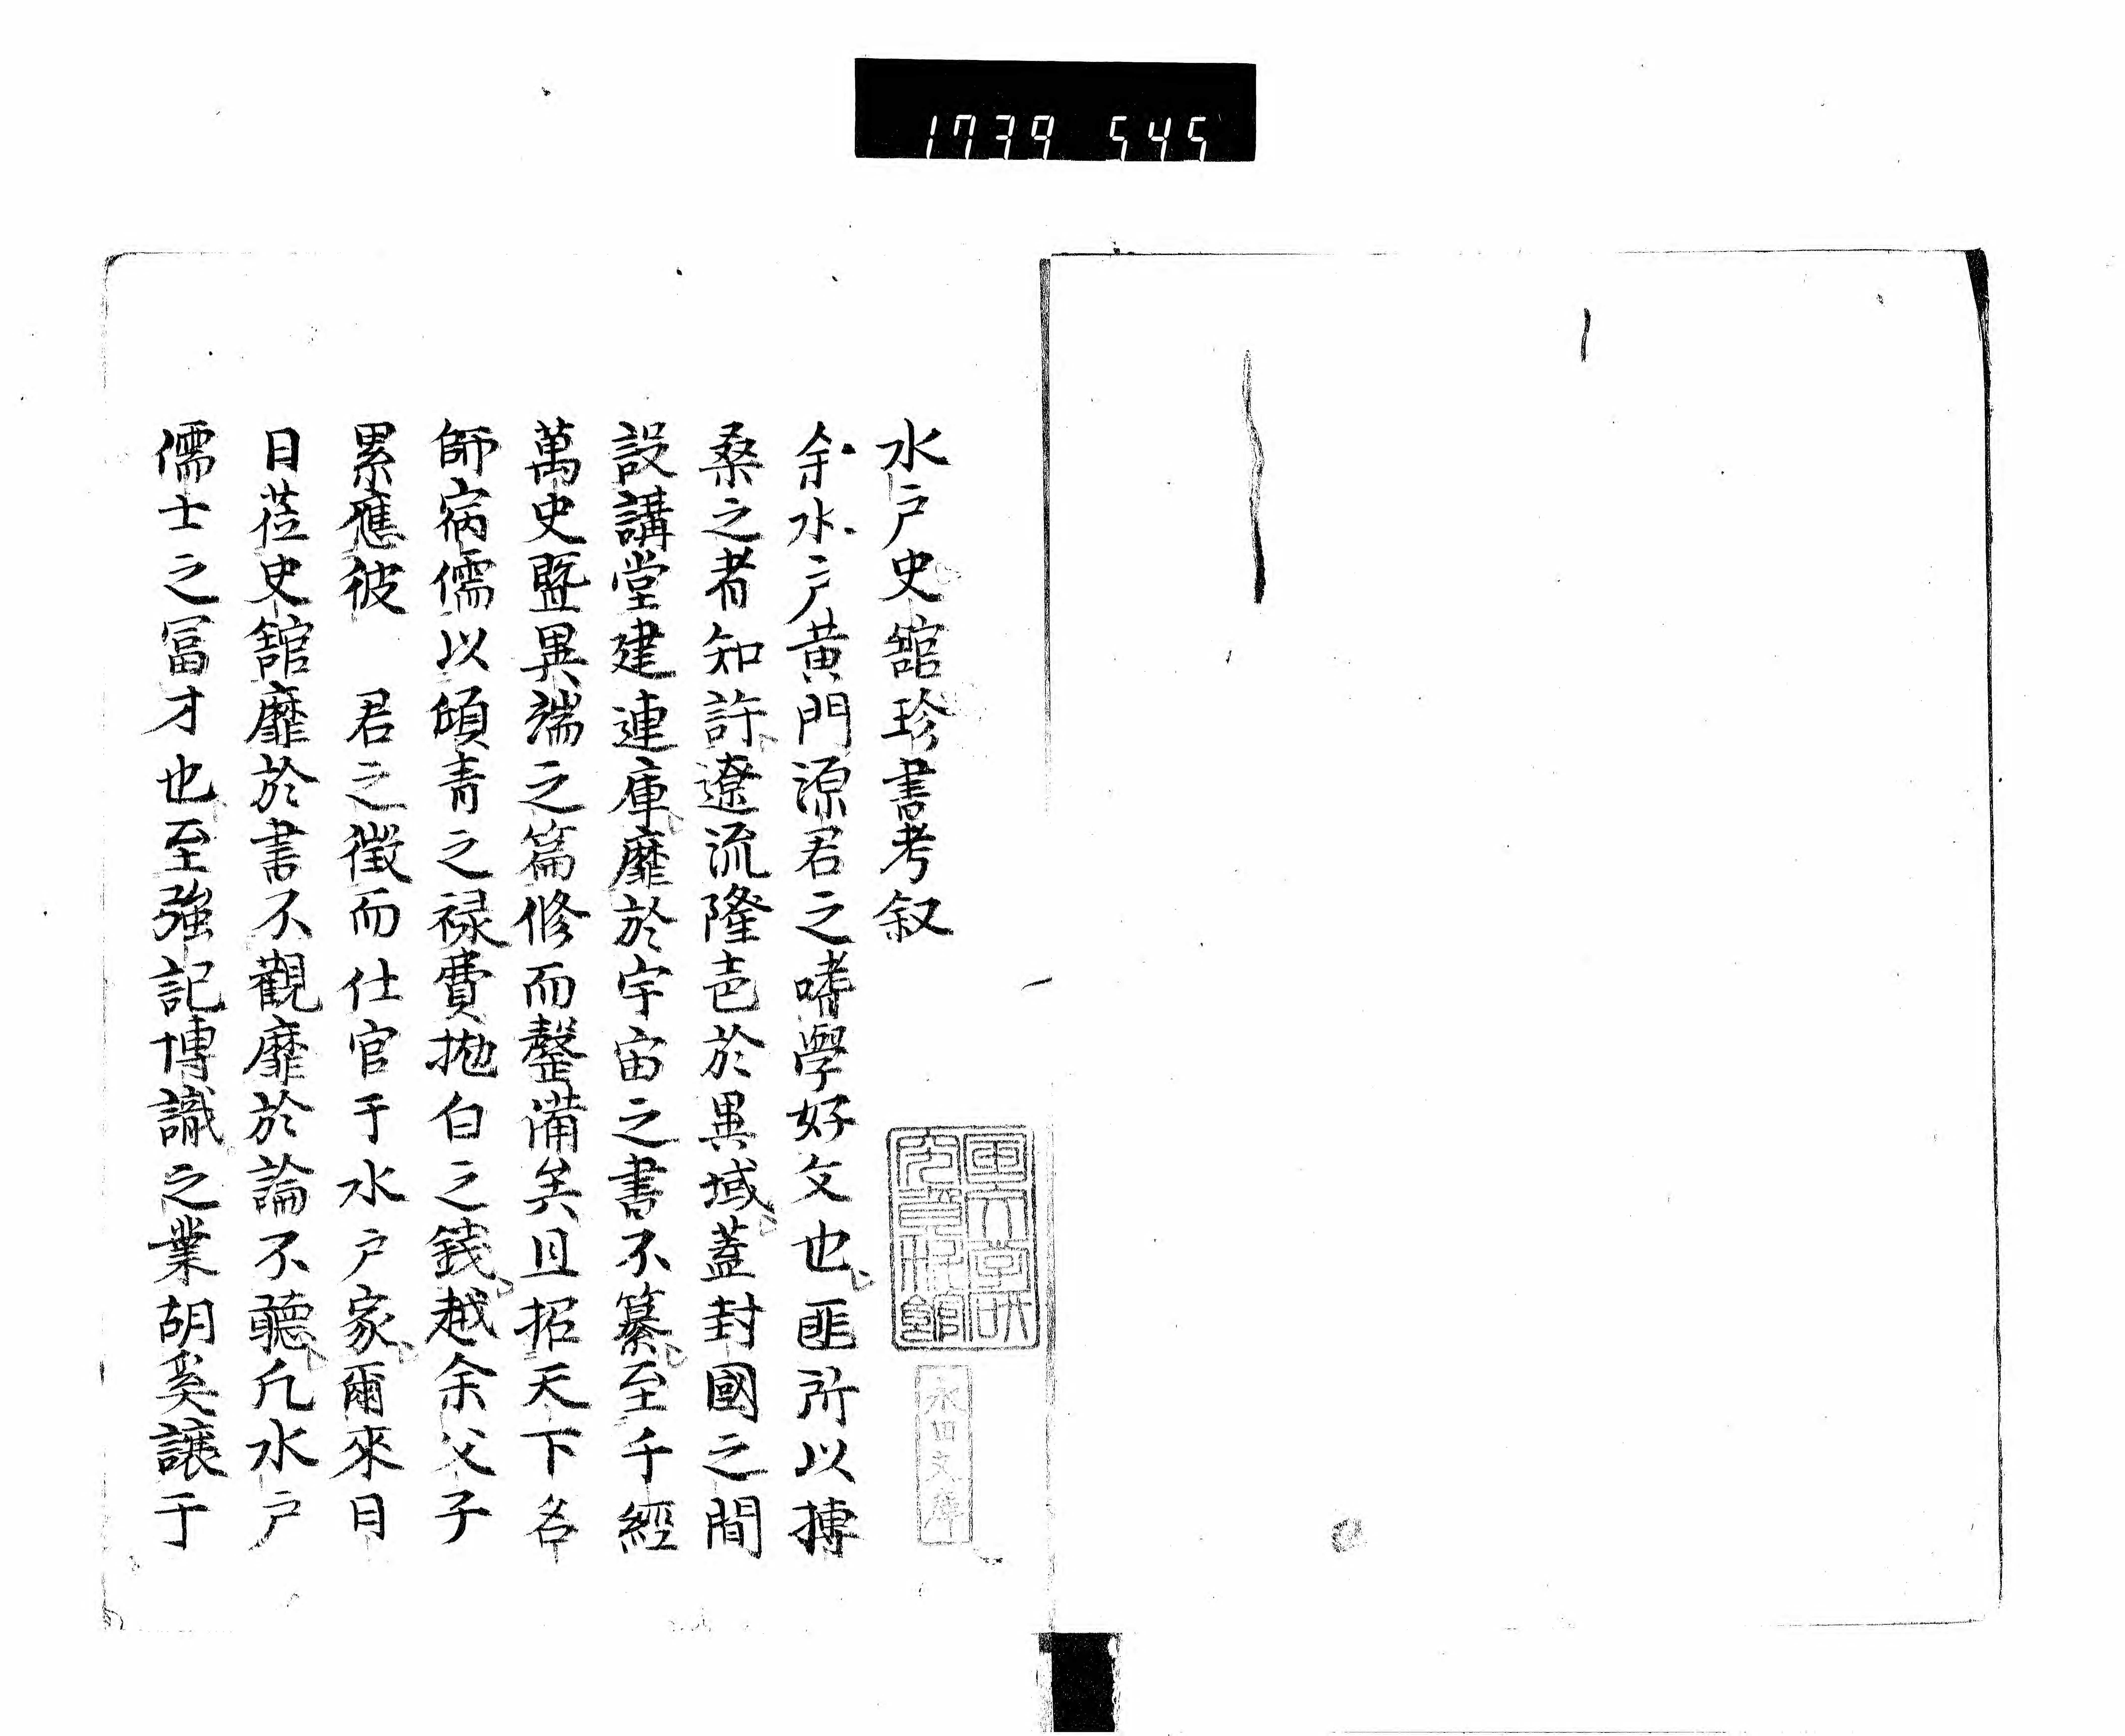 1739 545
水戸史舘珍書考叙
余水戸黄門源君之嗜學好文也匪所以搏
桑之者知許遼流隆邑於異域蓋封國之間
設講堂建連庫靡於宇宙之書不纂至千經
萬史曁異端之篇修而整備矣且招天下名
師病儒以傾青之禄費抛白之錢越余父子
累應彼　君之徴而仕官于水戸家爾來日
日莅史舘靡於書不觀靡於論不聴凡水戸
儒士之冨才也至強記博識之業胡奚譲于
國文学研
究資料館